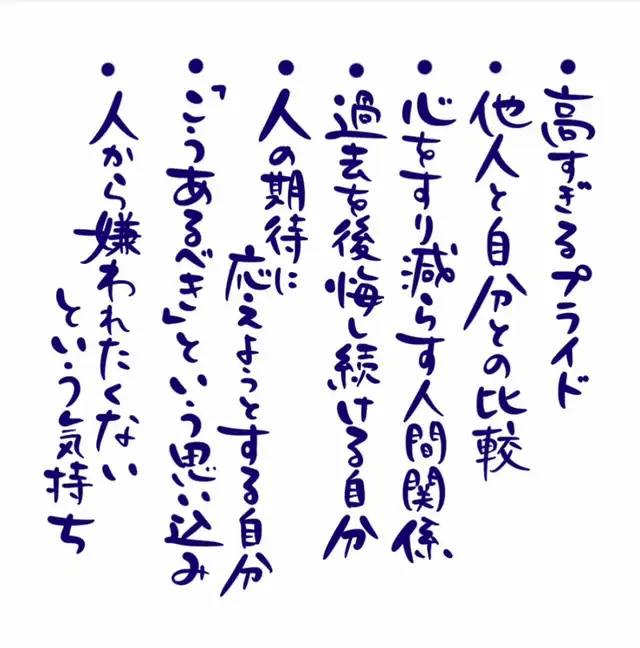 ・高すぎるプライド
・他人と自分との比較
・心をすり減らす人間関係
・過去を後悔し続ける自分
・人の期待に
応えようとする自分
・「こうあるべき」という思い込み
・人から嫌われたくない
という気持ち